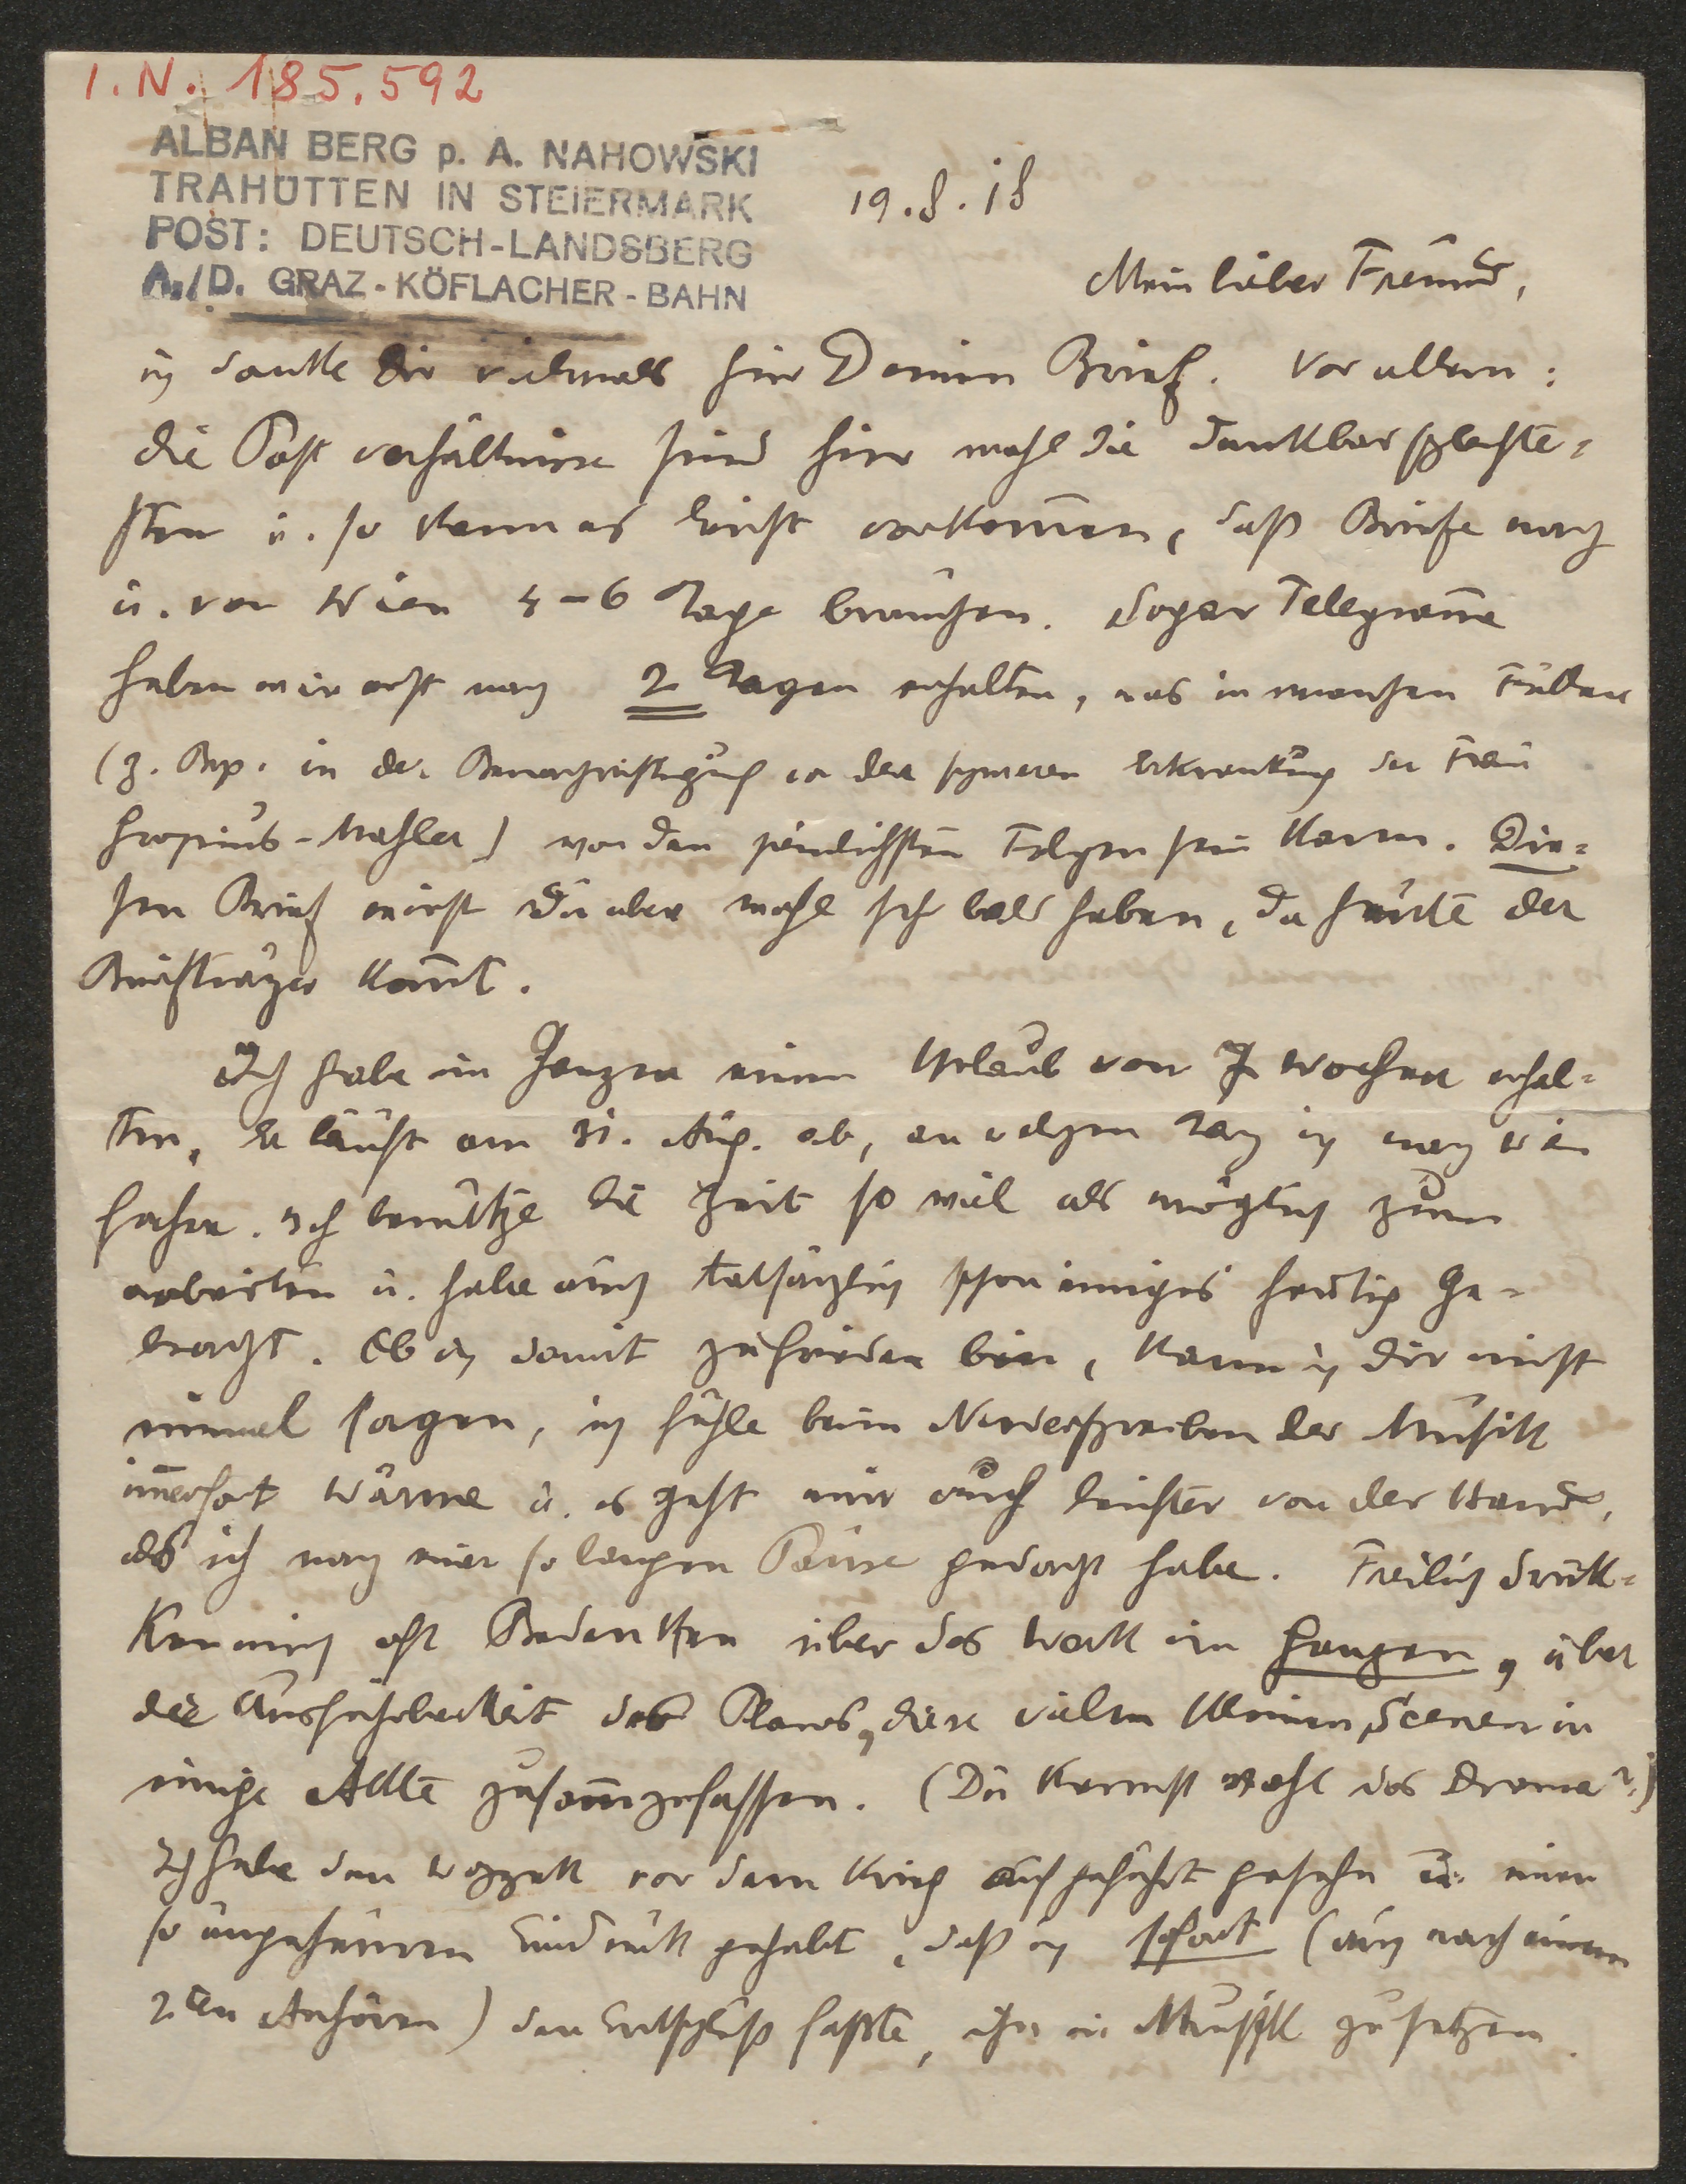 I.N. 185.592
ALBAN BERG p. A. NAHOWSKI
TRAHÜTTEN IN STEIERMARK
POST: DEUTSCH-LANDSBERG
A./D. GRAZ-KÖFLACHER-BAHN
19.8.18
Mein lieber Freund,
ich danke Dir vielmals für Deinen Brief. Vor allem:
die Postverhältnisse sind hier wohl die denkbar schlechte=
sten u. so kann es leicht vorkommen, daß Briefe nach
u. von Wien 4–6 Tage brauchen. Sogar Telegram̅e
haben wir erst nach 2 Tagen erhalten, was in manchen Fällen
(z. Bsp. in der Benachrichtigung von der schweren Erkrankung der Frau
Gropius-Mahler) von den peinlichsten Folgen sein kann. Die=
sen Brief wirst Du aber wohl sehr bald haben, da heute der
Briefträger kom̅t.
Ich habe im Ganzen einen Urlaub von 7 Wochen erhal=
ten, er läuft am 31. Aug. ab, an welchem Tag ich nach Wien
fahre. Ich benütze die Zeit so viel als möglich zum
arbeiten u. habe auch tatsächlich schon einiges fertig ge=
bracht. Ob ich damit zufrieden bin, kann ich Dir nicht
einmal sagen, ich fühle beim Niederschreiben der Musik
im̅erfort Wärme u. es geht mir auch leichter von der Hand,
als ich nach einer so langen Pause gedacht habe. Freilich drük=
ken mich oft Bedenken über das Werk im Ganzen, über
die Ausführbarkeit des Planes, diese vielen kleinen Scenen in
einige Akte zusam̅zufassen. (Du kennst wohl das Drama?)
Ich habe den Wozzek vor dem Krieg aufgeführt gesehn u. einen
so ungeheuren Eindruck gehabt, daß ich sofort (auch nach einem
2. ten Anhören) den Entschluß faßte, ihn in Musik zu setzen.